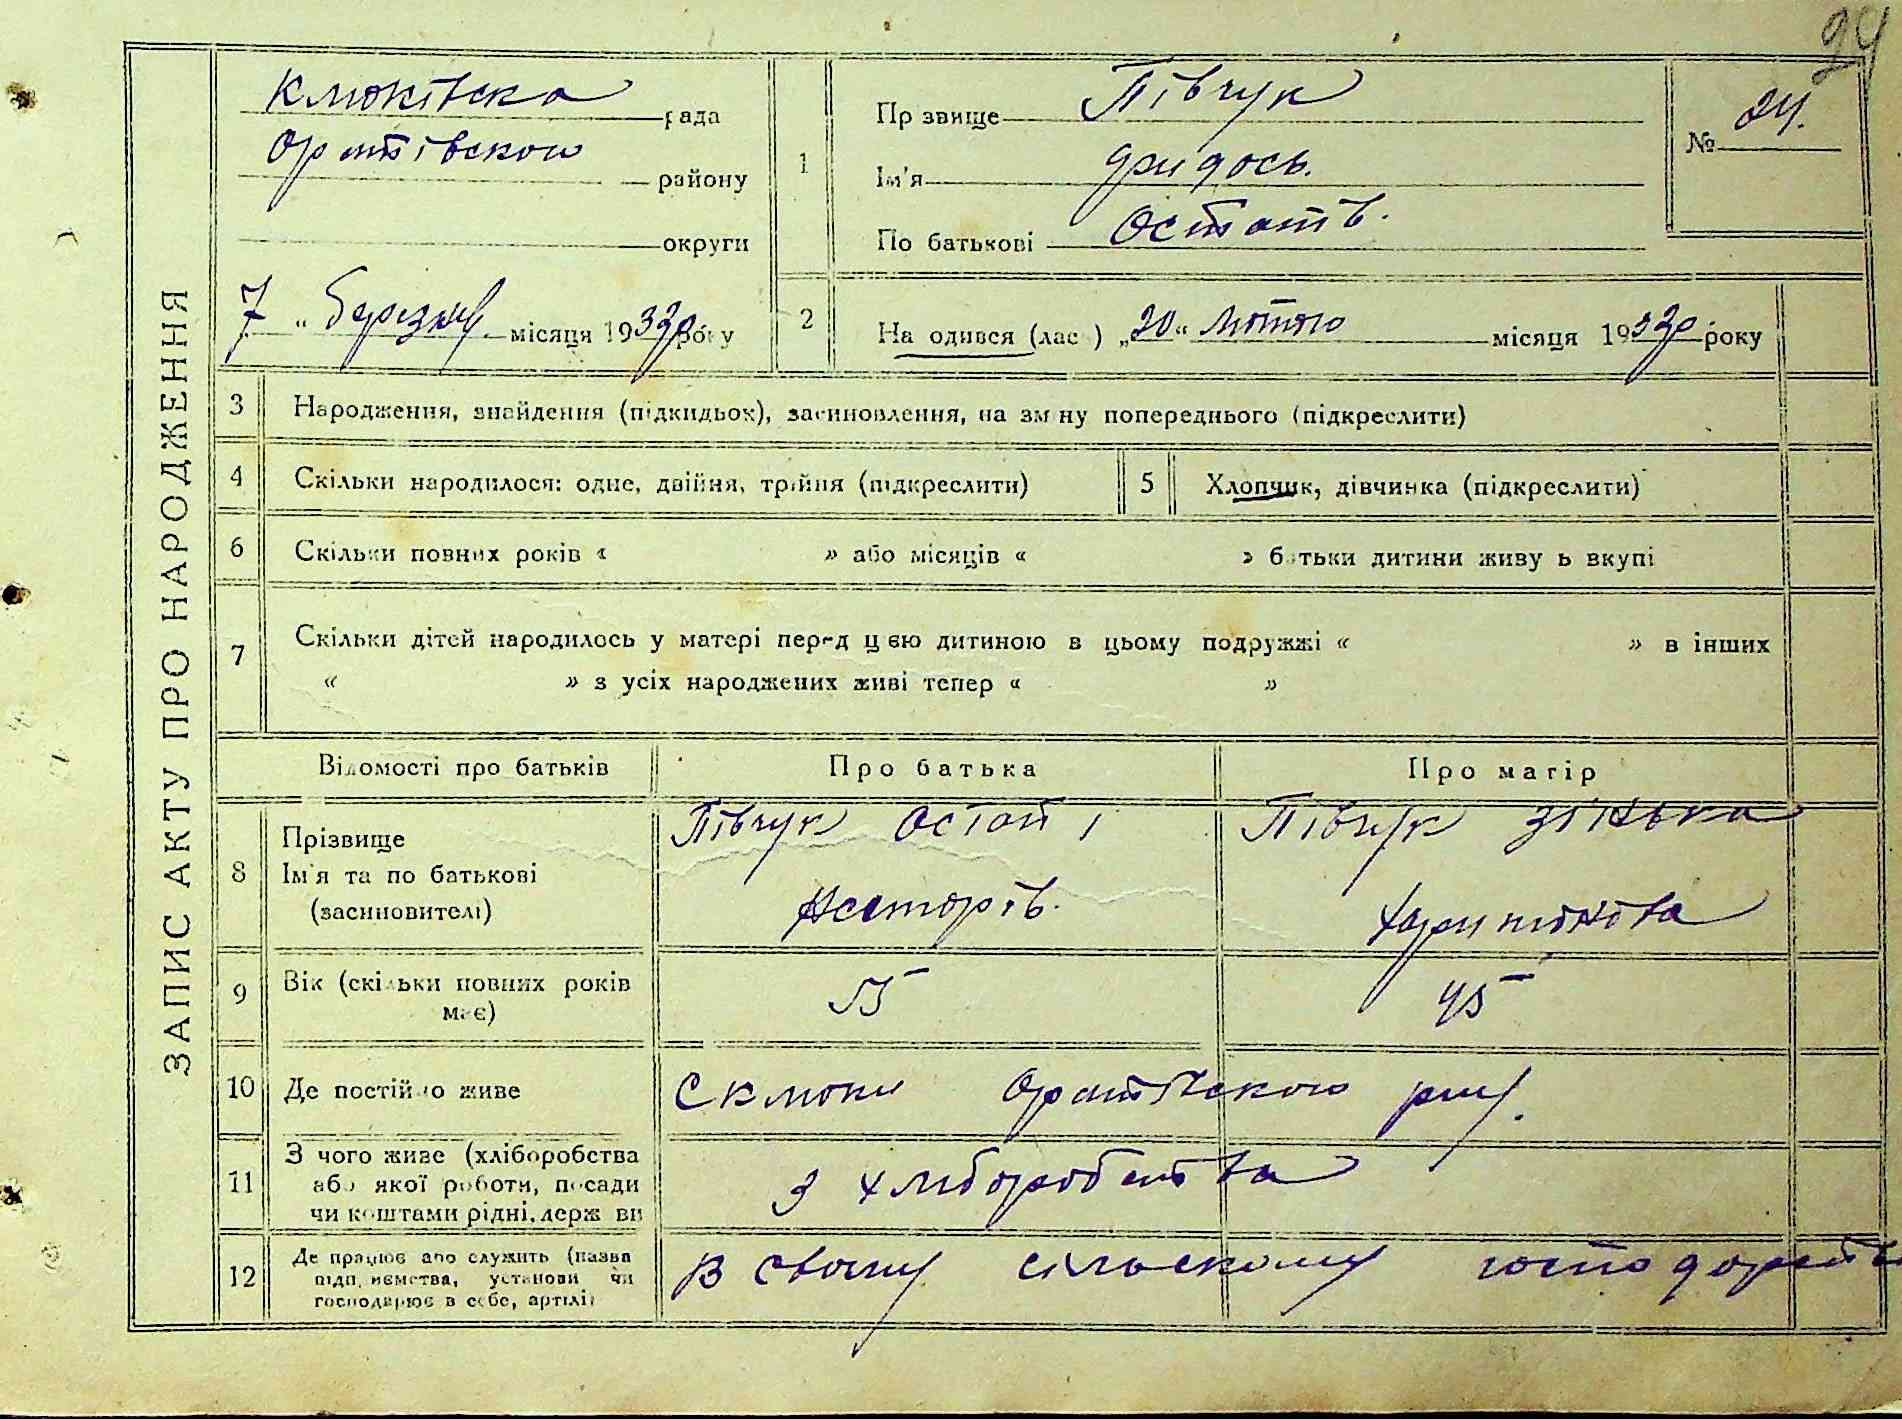 24
ЗАПИС АКТУ ПРО НАРОДЖЕННЯ
Клюківска рада
Оратівского району
округи
7 " березня місяця 1932р. року
1
Прізвище Півчук
Ім'я
По батькові Остапів.
№ 24.
2
Народився (лась) „20" лютого місяця 1932р. року
3 Народження, знайдення (підкидьок), засиновлення, на зміну попереднього (підкреслити)
4 Скільки народилося: одне, двійня, трійня (підкреслити)
5 Хлопчик, дівчинка (підкреслити)
6 Скільки повних років « » або місяців « » батьки дитини живуть вкупі
7 Скільки дітей народилось у матері перед цією дитиною в цьому подружжі « » в інших
« » з усіх народжених живі тепер « »
Відомості про батьків Про батька Про матір
8 Прізвище
Ім'я та по батькові
(засиновителі)
Півчук Остап
Несторів.
Півчук Зінька
Харитонова
9 Вік (скільки повних років
має)
45
10 Де постійно живе С Клюки Оратівского рну.
11 З чого живе (хліборобства
або якої роботи, посади
чи коштами рідні, держави
З хлиборобства
12 Де працює або служить (назва
підприємства, установи чи
господарює в себе, артілі)
В своему сільскому господарств